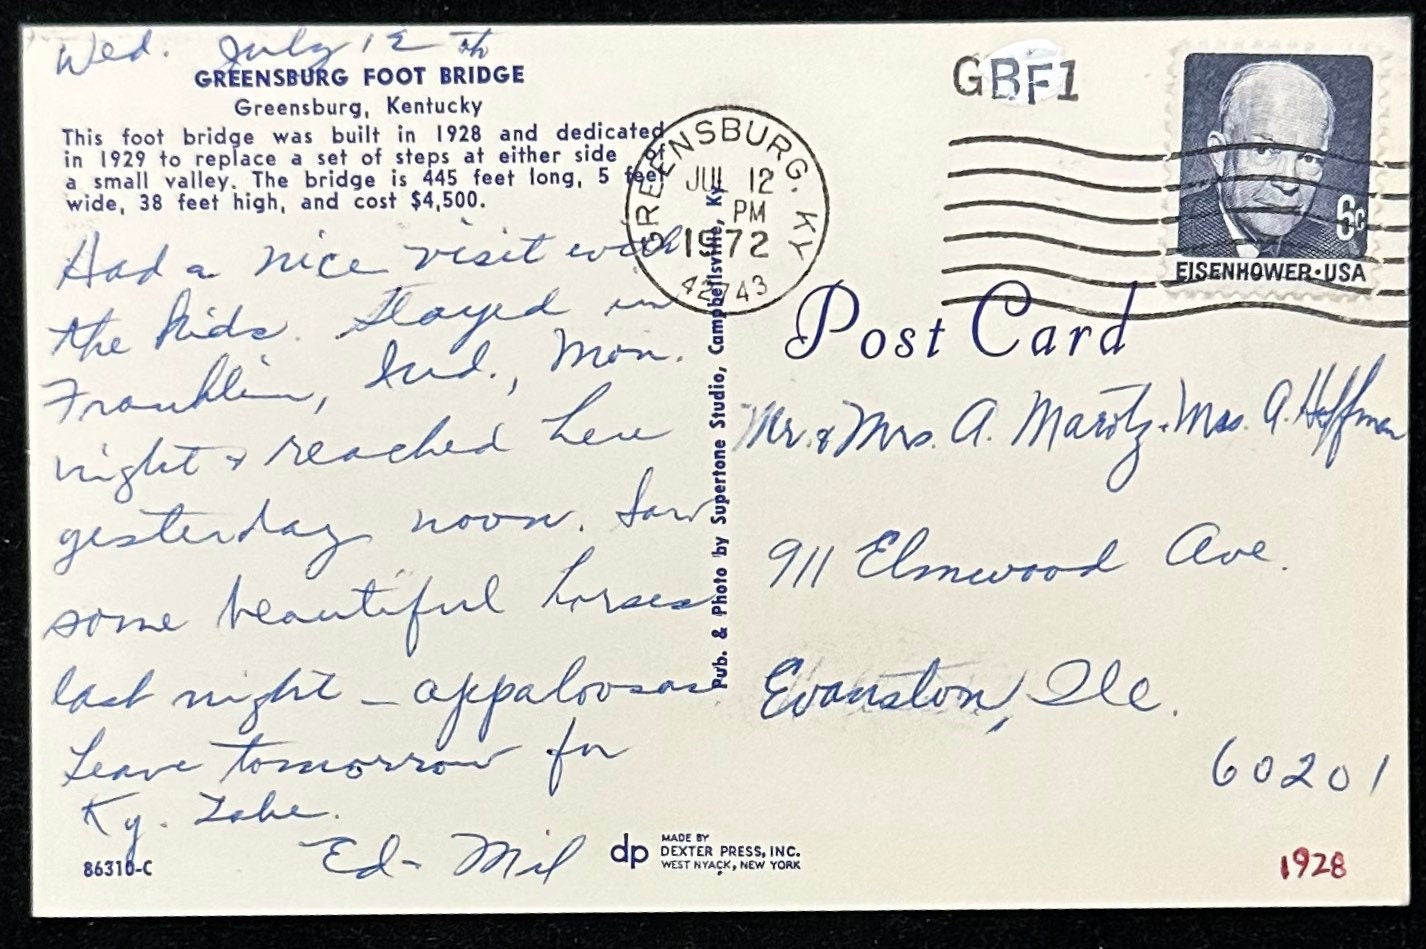 Wed. July 12th
GREENSBURG FOOT BRIDGE
Greensburg, Kentucky
This foot bridge was built in 1928 and dedicated
in 1929 to replace a set of steps at either side of
a small valley. The bridge is 445 feet long, 5 feet
wide, 38 feet high, and cost $4,500.
Had a nice visit with
the kids. Stayed in
Franklin, Ind., Mon.
night & reached here
yesterday noon. Saw
some beautiful horses
last night – appaloosas
Leave tomorrow for
Ky. Lake.
Ed - Mil
86310-C
dp
MADE BY
DEXTER PRESS, INC.
WEST NYACK, NEW YORK
Pub. & Photo by Supertone Studio, Campbellsville, Ky.
GREENSBURG. KY
JUL 12
PM
1972
42743
GBF1
6c
EISENHOWER·USA
Post Card
Mr. & Mrs. A. Marotz - Mrs. A. Hoffman
911 Elmwood Ave.
Evanston, Ill.
60201
1928